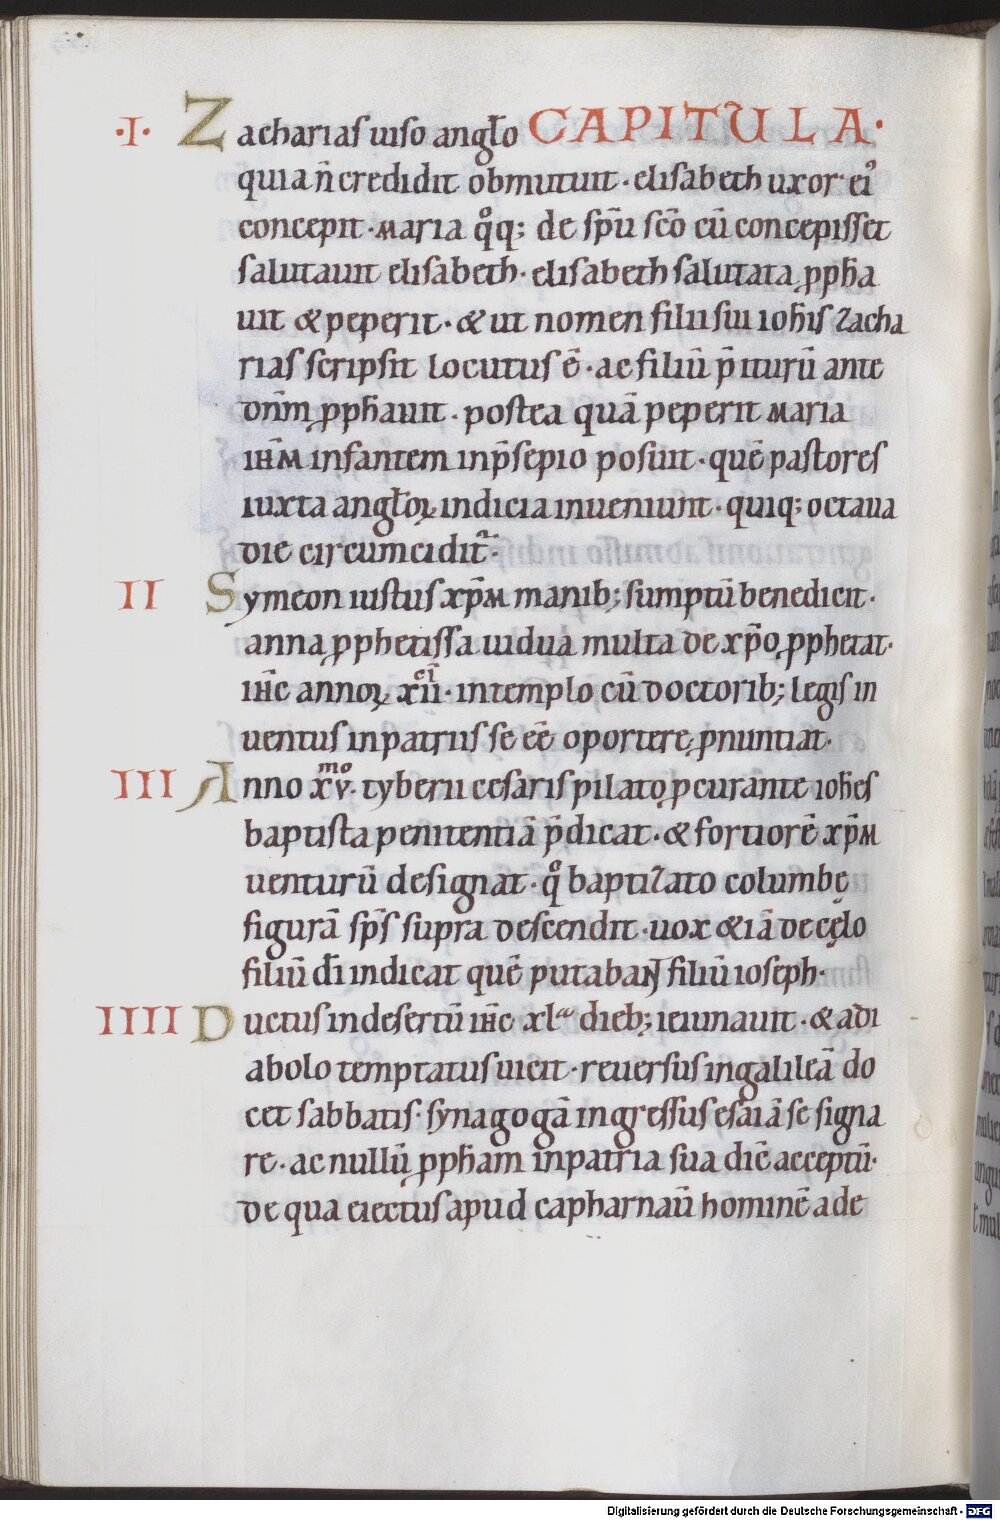 ·I· Zacharias uiso angl̄o CAPITULA·
quia n̄ credidit obmutuit · elisabeth uxor ei᾿
concepit · maria qͦq; de sp̄u sc̄o cū concepisset
salutauit elisabeth · elisabeth salutata ꝓph̄a
uit & peperit · & ut nomen filii sui ioh̄is zacha
rias scripsit locutus ē · ac filiū p̄iturū ante
dn̄m ꝓph̄auit · postea quā peperit maria
ih̄m infantem in p̄sepio posuit · quē pastores
iuxta angl̄oꝝ indicia inueniunt · quiq; octaua
die circumcidit᷑·
II Symeon iustus xp̄m manib; sumptū benedicit ·
anna ꝓphetissa uidua multa de xp̄o ꝓphetat·
ih̄c annoꝝ xii͏ͨͥ · in templo cū doctorib; legis in
uentus in patriis se ēē oportere ꝓnuntiat·
III Anno xv͏ͫͦ· tyberii cesaris pilato ꝓcurante ioh̄es
baptista penitentiā p̄dicat · & fortiorē xp̄m
uenturū designat · qͦ baptizato columbę
figurā sp̄s supra descendit · uox &iā de cęlo
filiū dī indicat quē putabant filiū ioseph·
IIII Ductus in desertū ih̄c xlᵃ dieb; ieiunauit · & a di
abolo temptatus uicit · reuersus in galileā do
cet sabbatis · synagogā ingressus esaiā se signa
re · ac nullū ꝓph̄am in patria sua diē acceptū·
de qua eiectus apud capharnaū hominē a de
Digitalisierung gefördert durch die Deutsche Forschungsgemeinschaft - DFG